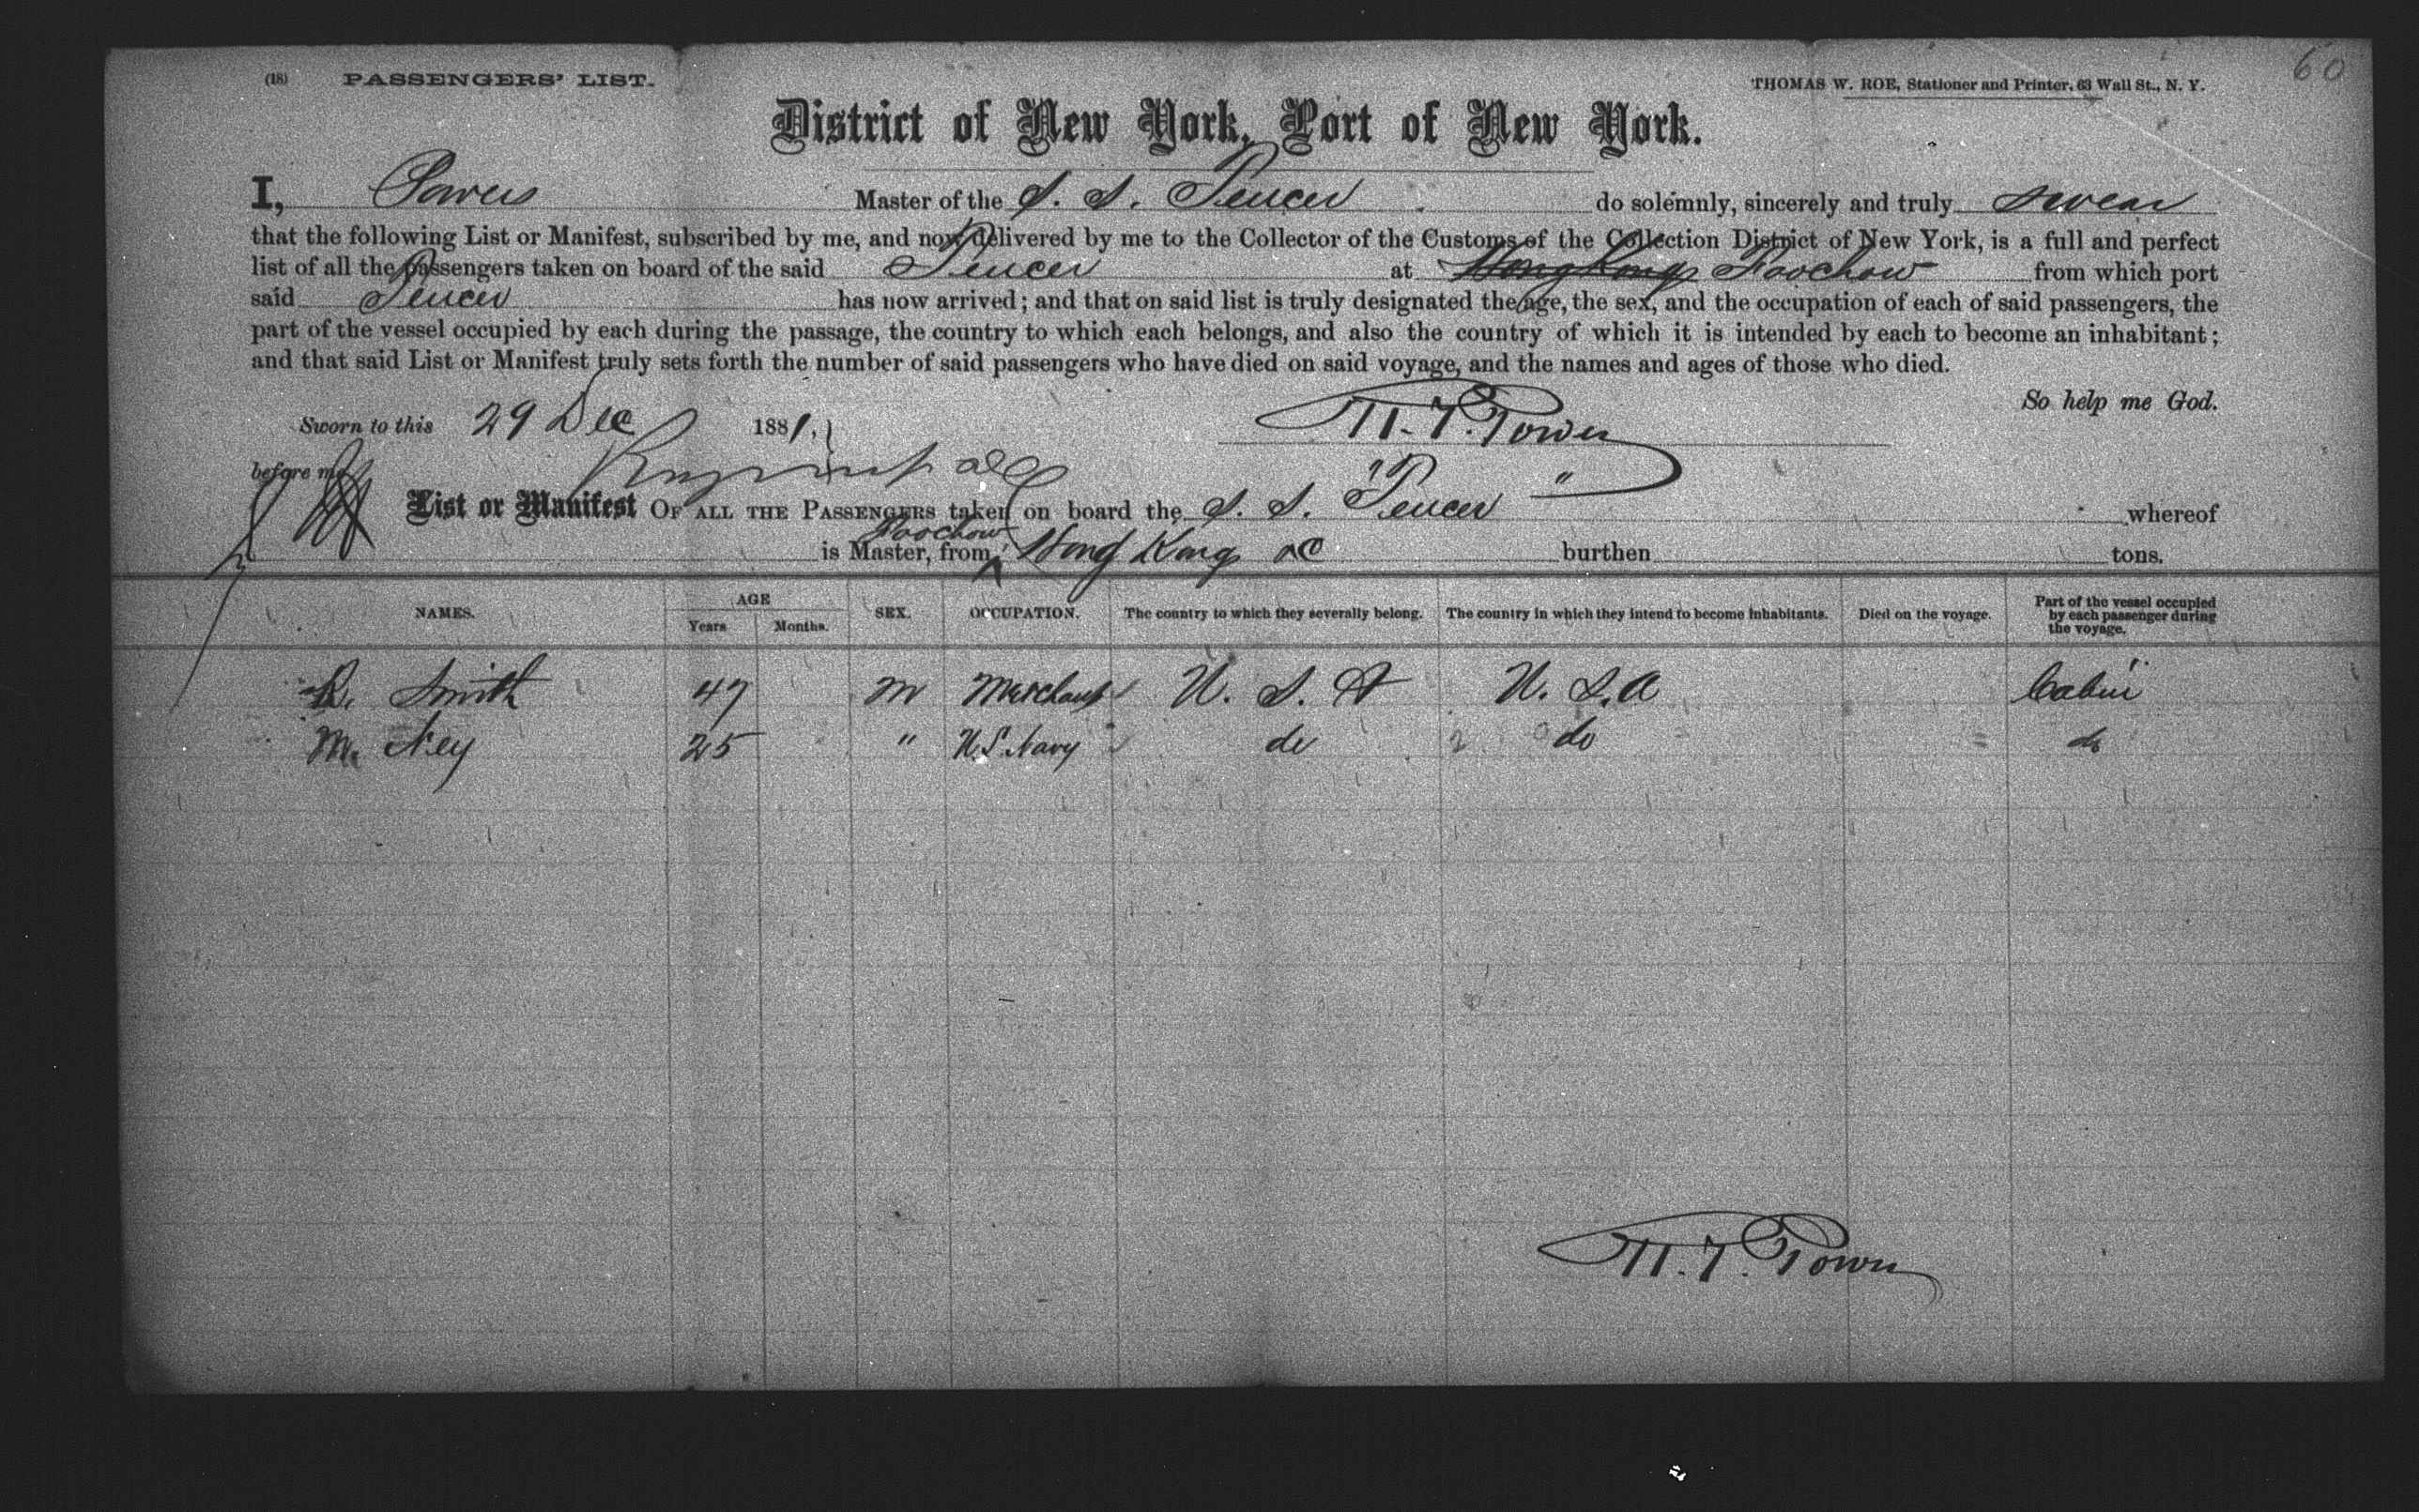 60
(18) PASSENGERS' LIST. THOMAS W. ROE, Stationer and Printer, 63 Wall St., N. Y.
District of New York, Port of New York.
I, Powers Master of the S. S. Teucer do solemnly, sincerely and truly swear
that the following List or Manifest, subscribed by me, and now delivered by me to the Collector of the Customs of the Collection District of New York, is a full and perfect
list of all the passengers taken on board of the said Teucer at Hong Kong Foochow from which port
said Teucer has now arrived; and that on said list is truly designated the age, the sex, and the occupation of each of said passengers, the
part of the vessel occupied by each during the passage, the country to which each belongs, and also the country of which it is intended by each to become an inhabitant;
and that said List or Manifest truly sets forth the number of said passengers who have died on said voyage, and the names and ages of those who died.
So help me God.
Sworn to this 29 Dec 1881,
before me
List or Manifest OF ALL THE PASSENGERS taken on board the S. S. Teucer whereof
is Master, from Foochow Hong Kong burthen tons.
NAMES. AGE Years Months. SEX. OCCUPATION. The country to which they severally belong. The country in which they intend to become inhabitants. Died on the voyage. Part of the vessel occupied by each passenger during the voyage.
R. Smith 47 M Merchant U. S. A U. S. A Cabin
M. Ney 25 " U.S. Navy do do do